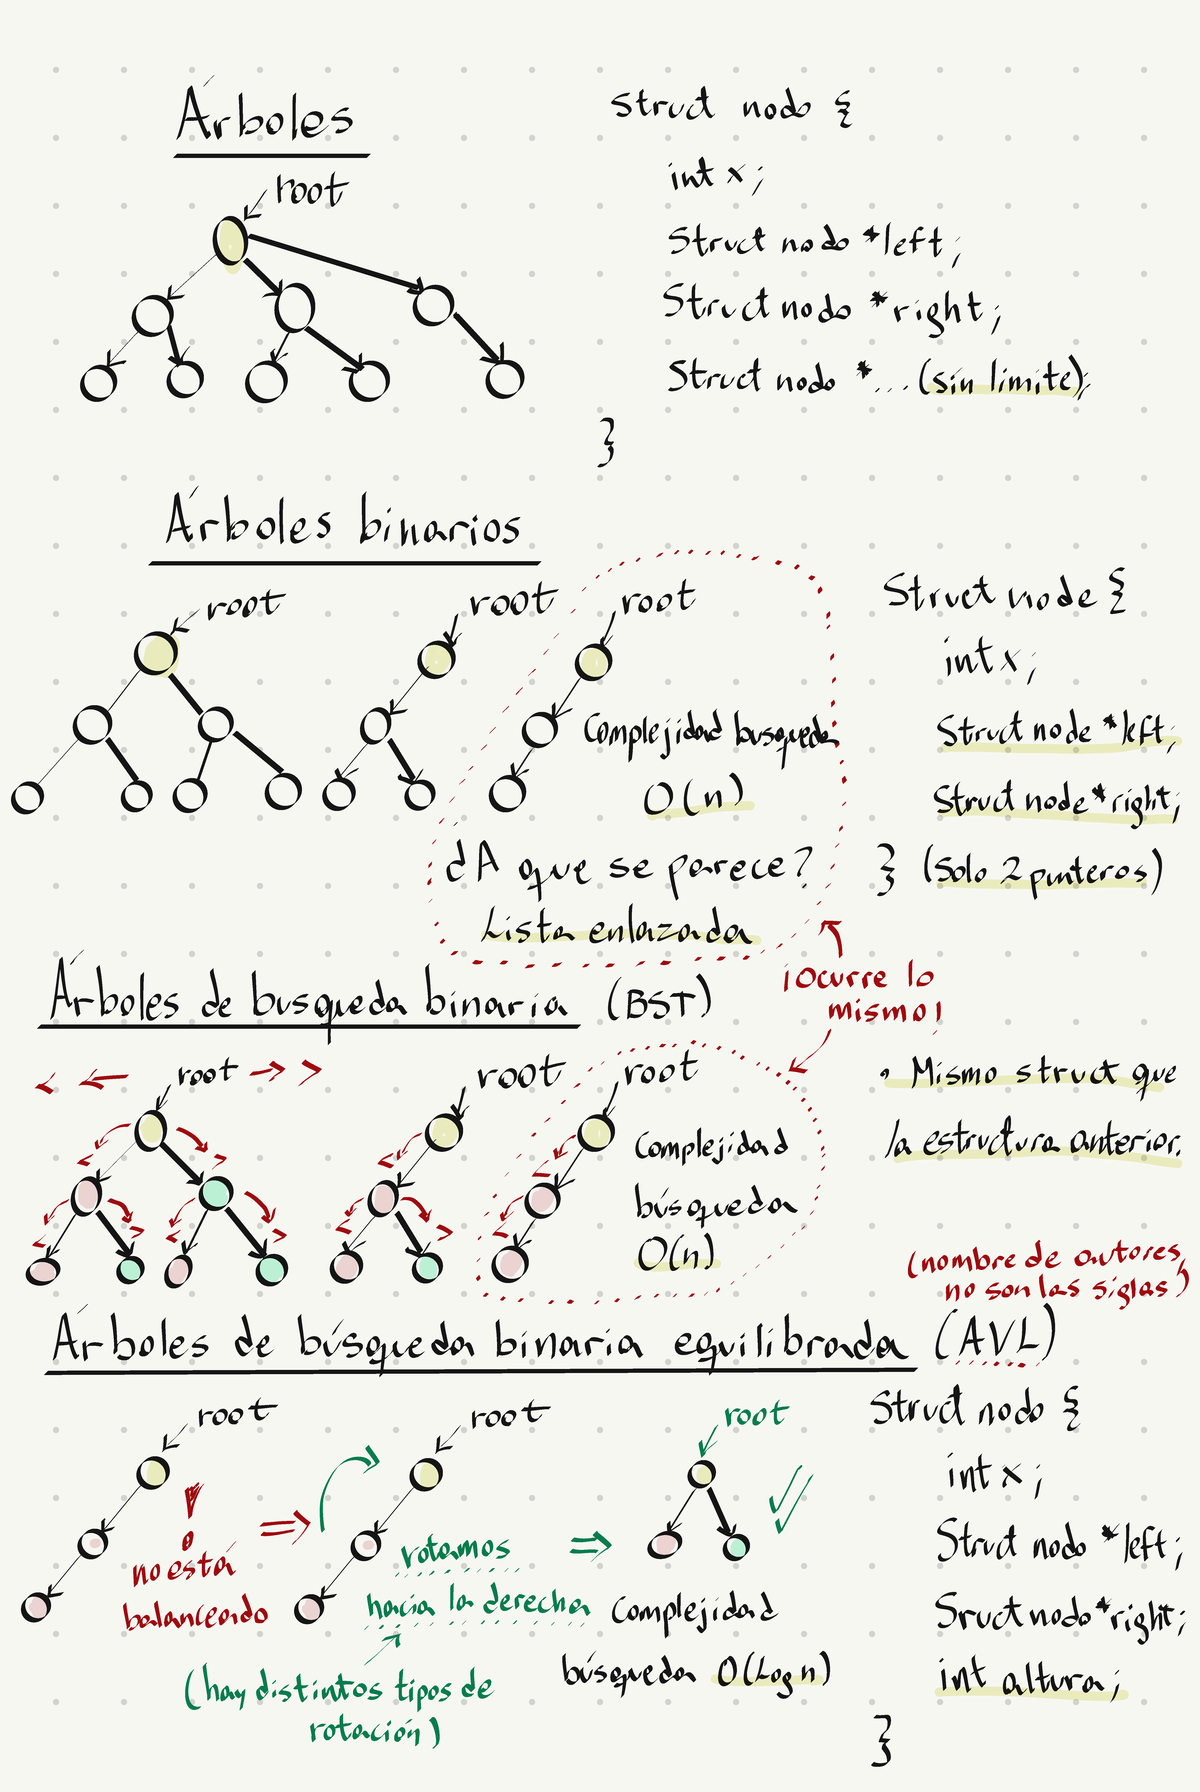 Árboles
root
Struct nodo {
int x;
Struct nodo *left;
Struct nodo *right;
Struct nodo *... (sin limite);
}
Árboles binarios
root
root
root
Complejidad busqueda
O(n)
¿A que se parece?
Lista enlazada
Struct node {
int x;
Struct node *left;
Struct node *right;
} (Solo 2 punteros)
¡Ocurre lo
mismo!
Árboles de busqueda binaria (BST)
root
root
root
Complejidad
búsqueda
O(n)
• Mismo struct que
la estructura anterior.
(nombre de autores,
no son las siglas)
Árboles de búsqueda binaria equilibrada (AVL)
root
!
no está
balanceado
root
rotamos
hacia la derecha
(hay distintos tipos de
rotación)
root
Complejidad
búsqueda O(Log n)
Struct nodo {
int x;
Struct nodo *left;
Sruct nodo *right;
int altura;
}